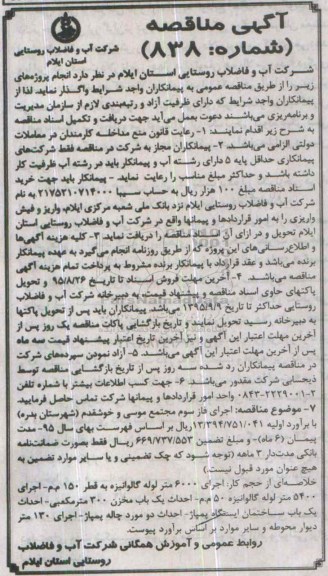 آگهی مناقصه
(شماره: ۸۳۸)
شرکت آب و فاضلاب روستایی
استان ایلام
شرکت آب و فاضلاب روستایی استان ایلام در نظر دارد انجام پروژه‌های
زیر را از طریق مناقصه عمومی به پیمانکاران واجد شرایط واگذار نماید. لذا از
پیمانکاران واجد شرایط که دارای ظرفیت آزاد و رتبه‌بندی لازم از سازمان مدیریت
و برنامه‌ریزی می‌باشند دعوت بعمل می‌آید جهت دریافت و تکمیل اسناد مناقصه
به شرح زیر اقدام نمایند: ۱- رعایت قانون منع مداخله کارمندان در معاملات
دولتی الزامی می‌باشد. ۲- پیمانکاران مجاز به شرکت در مناقصه فقط شرکت‌های
پیمانکاری حداقل پایه ۵ دارای رشته آب و پیمانکار باید در رشته آب ظرفیت کار
داشته باشد و حداکثر مبلغ مناسب را رعایت نماید - پیمانکار باید جهت خرید
اسناد مناقصه مبلغ ۱۰۰ هزار ریال به حساب سیبا ۲۱۷۵۲۱۰۷۱۴۰۰۰ به نام
شرکت آب و فاضلاب روستایی ایلام نزد بانک ملی شعبه مرکزی ایلام، واریز و فیش
واریزی را به امور قراردادها و پیمانها واقع در شرکت آب و فاضلاب روستایی استان
ایلام تحویل و در ازای آن اسناد مناقصه را دریافت نماید. ۳- کلیه هزینه آگهی‌ها
و اطلاع‌رسانی‌های این پروژه که از طریق روزنامه انجام می‌گیرد به عهده پیمانکار
برنده می‌باشد و عقد قرارداد با پیمانکار برنده مشروط به پرداخت تمام هزینه آگهی
مناقصه می‌باشد. ۴- آخرین مهلت فروش اسناد تا تاریخ ۹۵/۸/۲۶ و تحویل
پاکتهای حاوی اسناد مناقصه و پیشنهاد قیمت، به دبیرخانه شرکت آب و فاضلاب
روستایی حداکثر تا تاریخ ۱۳۹۵/۹/۹ می‌باشد. پیمانکاران باید پس از تحویل پاکتها
به دبیرخانه رسید تحویل نمایند و تاریخ بازگشایی پاکات مناقصه یک روز پس از
آخرین مهلت اعتبار این آگهی و نیز آخرین تاریخ اعتبار پیشنهاد قیمت سه ماه
پس از آخرین مهلت این آگهی می‌باشد. ۵- آزاد نمودن سپرده‌های شرکت
در مناقصه پیمانکاران رد شده سه روز پس از تاریخ بازگشایی مناقصه توسط
ذیحسابی شرکت مقدور می‌باشد. ۶- جهت کسب اطلاعات بیشتر با شماره تلفن
۰۸۴۳-۲۲۲۹۰۰۱-۲ واحد امور قراردادها و پیمانها شرکت تماس حاصل فرمایید.
۷- موضوع مناقصه: اجرای فاز سوم مجتمع موسی و خوشقدم (شهرستان بدره)
با برآورد اولیه ۱۳/۳۹۴/۷۵۱/۰۴۱ ریال بر اساس فهرست بهای سال ۹۵- مدت
پیمان (۶ ماه)- و مبلغ تضمین ۶۶۹/۷۳۷/۵۵۳ ریال فقط بصورت ضمانت‌نامه
بانکی مدت‌دار ۳ ماهه (توجه شود که چک تضمینی و یا سایر موارد تضمین به
هیچ عنوان مورد قبول نیست.)
خلاصه‌ای از حجم کار: اجرای ۶۰۰۰ متر لوله گالوانیزه به قطر ۱۵۰ م.م- اجرای
۵۴۰۰ متر لوله گالوانیزه ۵۰ م.م- احداث یک باب مخزن ۳۰۰ مترمکعبی- احداث
یک باب ساختمان ایستگاه پمپاژ- احداث دو مورد چاله پمپاژ- اجرای ۱۳۰ متر
دیوار محوطه و سایر موارد بر اساس برآورد پیوست.
روابط عمومی و آموزش همگانی شرکت آب و فاضلاب
روستایی استان ایلام